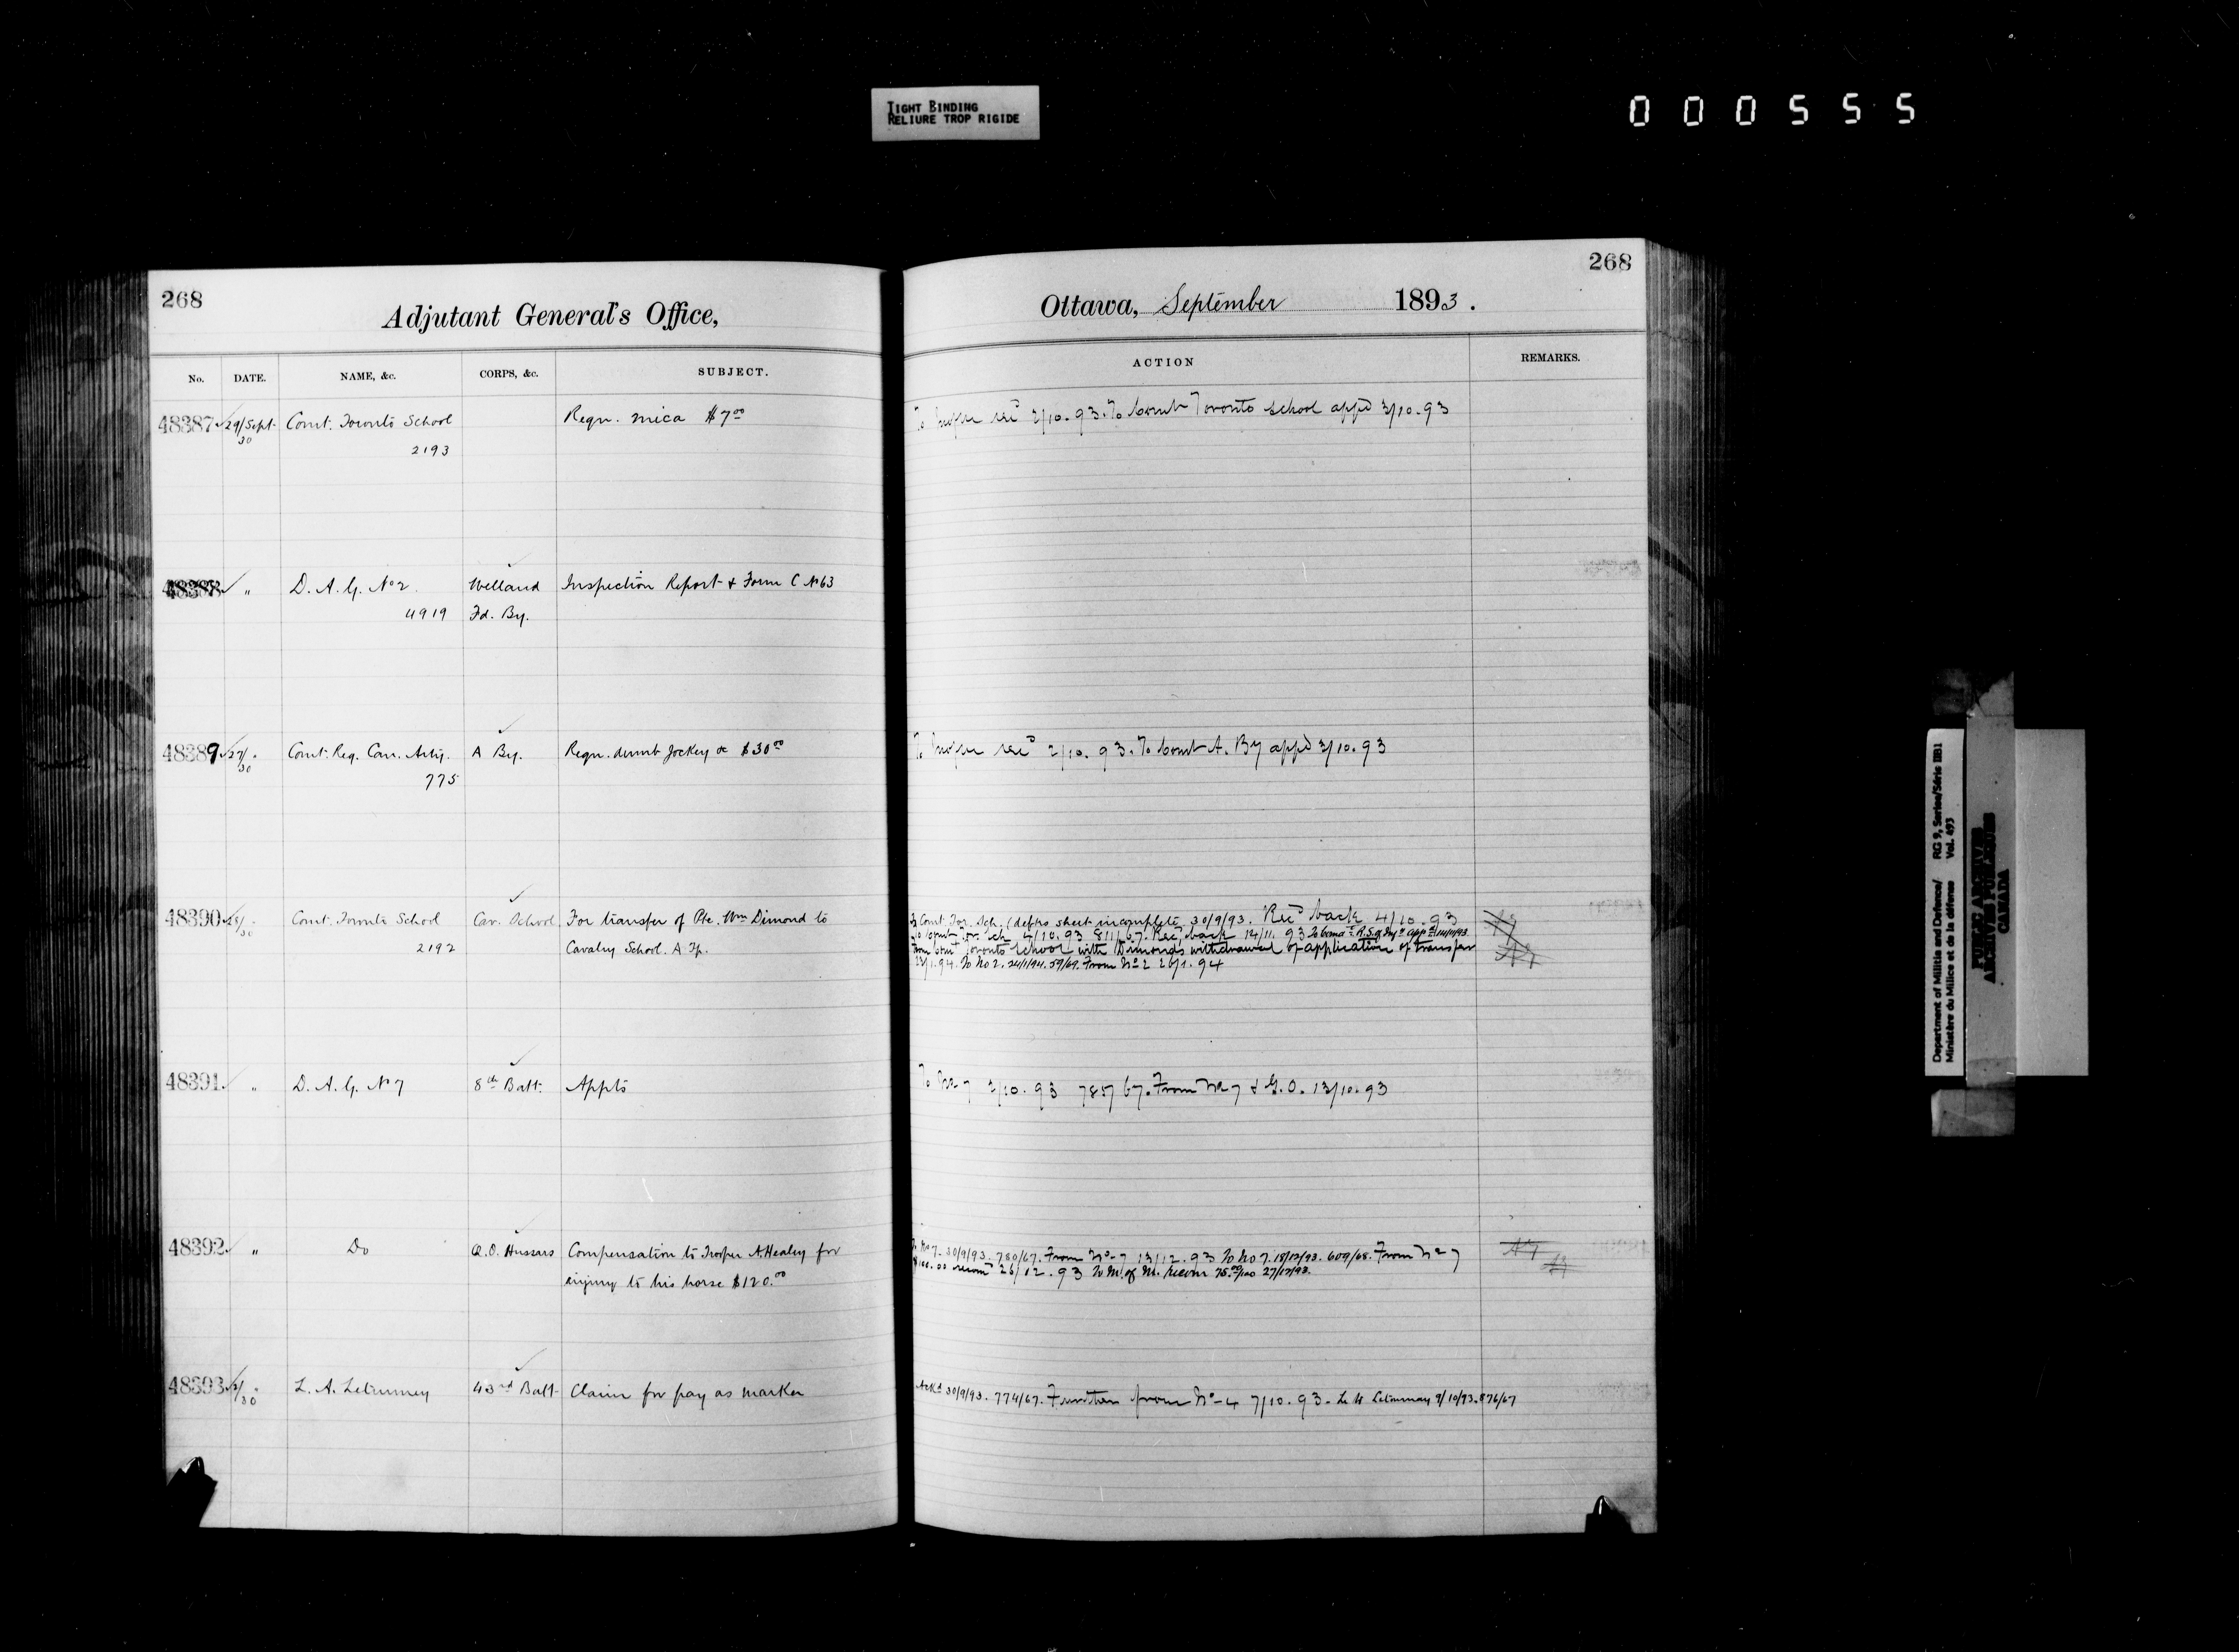 TIGHT BINDING
RELIURE TROP RIGIDE
000555
268
Adjutant General's Office,
No. DATE. NAME, &c. CORPS, &c. SUBJECT.
48387 29/Sept. 30 Comt. Toronto School Reqn. mica $7.00
2193
48388 " D. A. G. No 2. Welland Inspection Report & Form C No 63
4919 Fd. By.
48389 27/30 " Comt. Reg. Can. Arty. A By. Reqn. dumb Jockey &c $30.00
775
48390 28/30 " Comt. Toronto School Cav. School For transfer of Pte. Wm Dimond to
2192 Cavalry School. A Tp.
48391 " D. A. G. No 7 8th Batt. Appts
48392 " Do Q.O. Hussars Compensation to Trooper A. Healey for
injury to his horse $120.00
48393 30 " L. A. Letimmey 43rd Batt Claim for pay as marker
268
Ottawa, September 1893.
ACTION REMARKS.
2/10.93. To Comt Toronto School appd 3/10.93
2/10.93. To Comt A. By appd 3/10.93
To Comt. Tor. Sch. (defro sheet incomplete 30/9/93. Recd back 4/10.93
To Comt. Tor. Sch 4/10.93 811/67. Recd back 14/11.93
From Comt Toronto School with Dimonds withdrawal of application of transfer
23/1.94. To No 2. 24/1/94. 59/69. From No 2 26/1.94
To No 7 3/10.93 785/67. From No 7 & G.O. 13/10.93
To No 7. 30/9/93. 780/67. From No 7 13/12.93 To No 7. 18/12/93. 609/68. From No 7
$100.00 recomd 26/12.93 To M. of M. recom 75.00/100 27/12/93.
Ackd 30/9/93. 774/67. Further from No 4 7/10.93. Letimmay 9/10/93. 876/67
Department of Militia and Defence/ RG 9, Series/Séris IIB1
Ministère du Milice et de la défense Vol. 493
PUBLIC ARCHIVES
ARCHIVES PUBLIQUES
CANADA